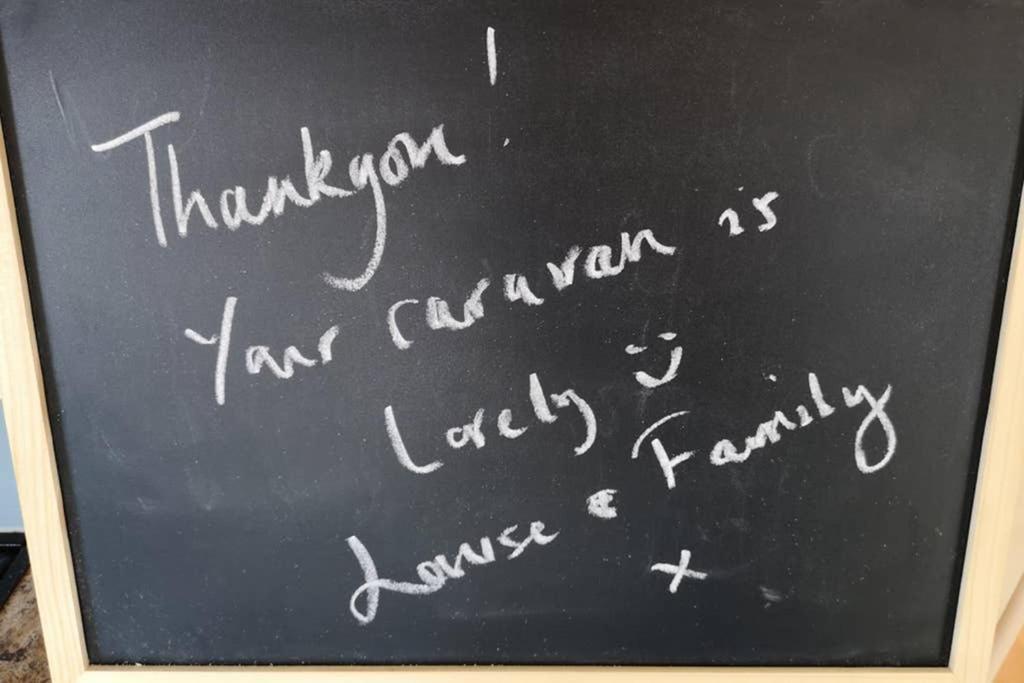 Thankyou!
Your caravan is
Lovely :)
Louise & Family
x